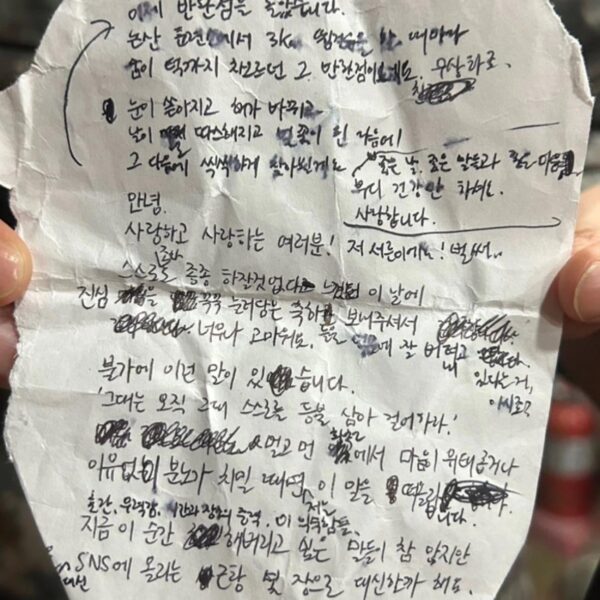 이제 반환점을 돌았습니다.
논산 훈련소에서 3k 뜀걸음을 할 때마다
숨이 턱까지 차오르던 그 반환점이네요.
눈이 쏟아지고 해가 바뀌고
날이 따스해지고 벚꽃이 핀 다음에
그 다음에 씩씩하게 찾아뵐게요
좋은 날, 좋은 말들과 좋은 마음
부디 건강만 하세요.
사랑합니다.
안녕.
사랑하고 사랑하는 여러분! 저 서른이에요! 벌써..
스스로도 종종 하잘것없다 이 날에
진심을 꾹꾹 눌러담은 축하 보내주셔서
너무나 고마워요. 잘 버텨고
있다는 거,
아시죠?
불가에 이런 말이 있습니다.
'그대는 오직 그대 스스로를 등불 삼아 걸어가라.'
멀고 먼 에서 마음이 위태롭거나
이유없이 분노가 치밀 때면 저는 이 말을 떠올립니다.
시간과 장소의 이
지금 이 순간 해버리고 싶은 말들이 참 많지만
SNS에 올리는 대신
근황 몇 장으로 대신할까 해요.